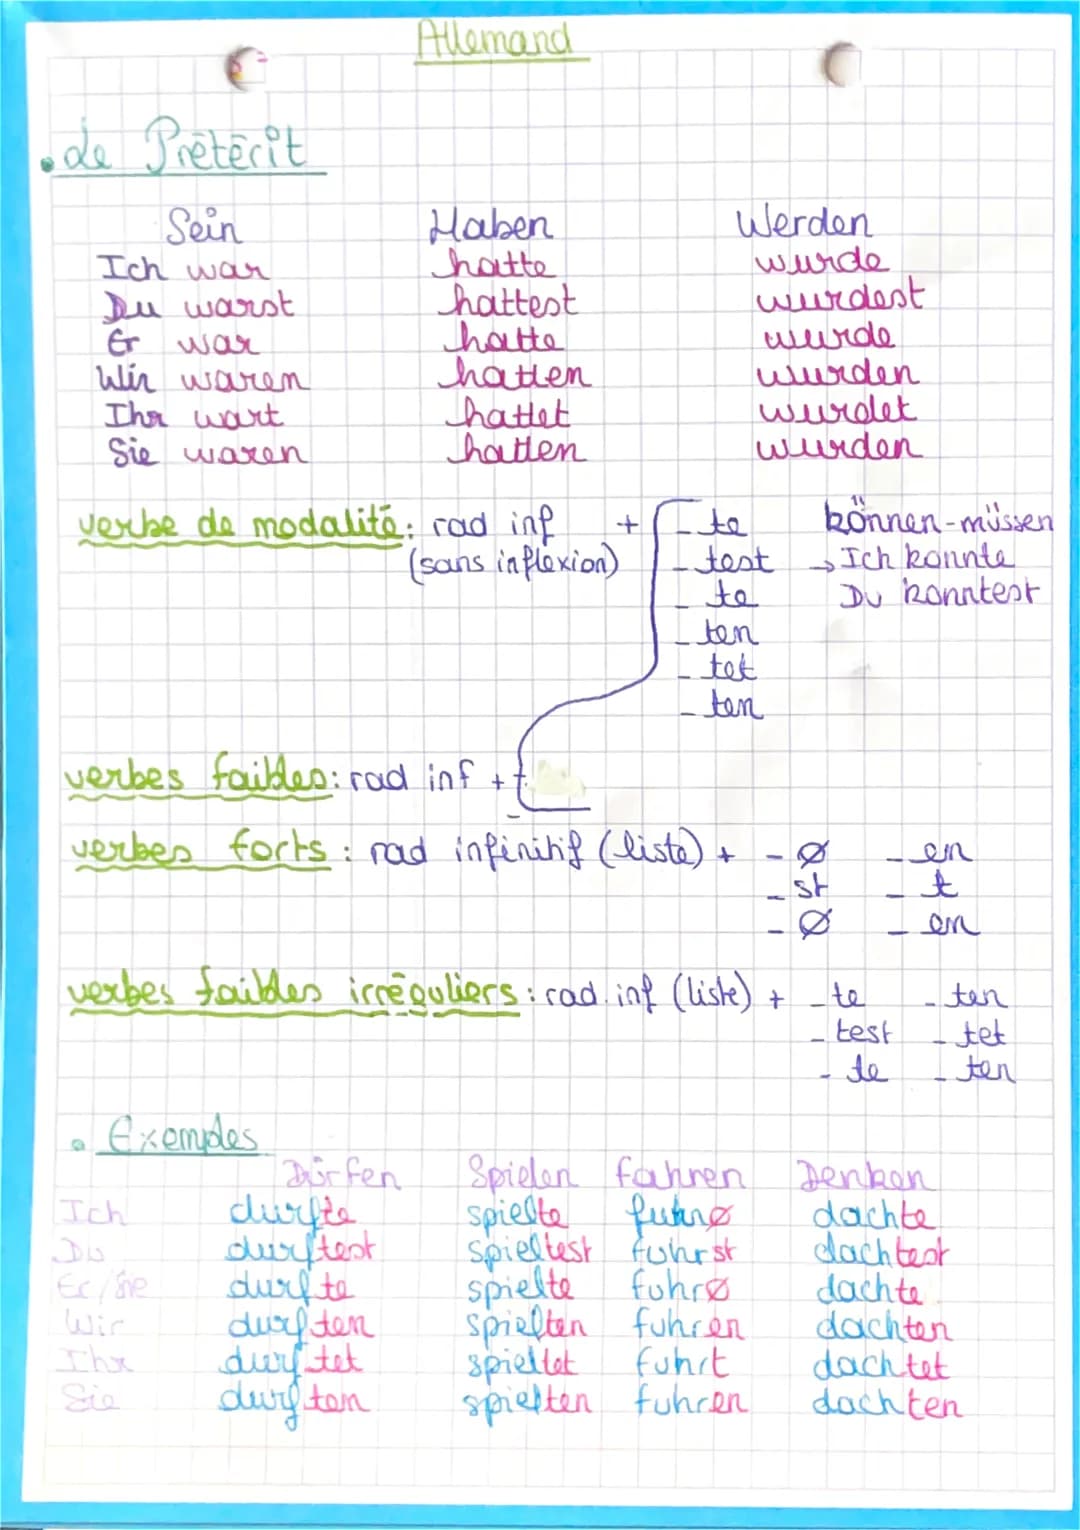 Allemand
• Le Prétérit
Sein Haben Werden
Ich war hatte wurde
Du warst hattest wurdest
Er war hatte wurde
Wir waren hatten wurden
Ihr wart hattet wurdet
Sie waren hatten wurden
verbe de modalité : rad inf + - te können - müssen
(sans inflexion) - test → Ich konnte
- te Du konntest
- ten
- tet
- ten
verbes faibles : rad inf +
verbes forts : rad infinitif (liste) + - ø - en
- st - t
- ø - en
verbes faibles irréguliers : rad. inf (liste) + - te - ten
- test - tet
- te - ten
• Exemples
Dürfen Spielen fahren Denken
Ich durfte spielte fuhrø dachte
Du durftest spieltest fuhrst dachtest
Er/Sie durfte spielte fuhrø dachte
Wir durften spielten fuhren dachten
Ihr durftet spieltet fuhrt dachtet
Sie durften spielten fuhren dachten